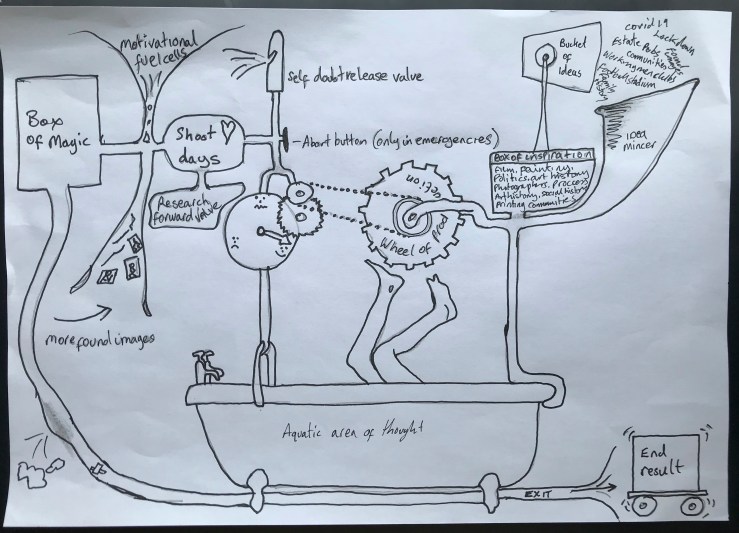 motivational
fuelcells
self doubt release valve
Bucket
of
ideas
covid 19
Lockdown
Estate Pubs
communities
Working men clubs
football stadium
Box
of Magic
Shoot
days
Abort button (only in emergencies)
idea
mincer
Box of inspiration
Film, painting,
Politics, art history
Photographers, Process
Art history, social history
Printing communities
Research
forward valve
Wheel of Production
more found images
Aquatic area of thought
End
result
EXIT